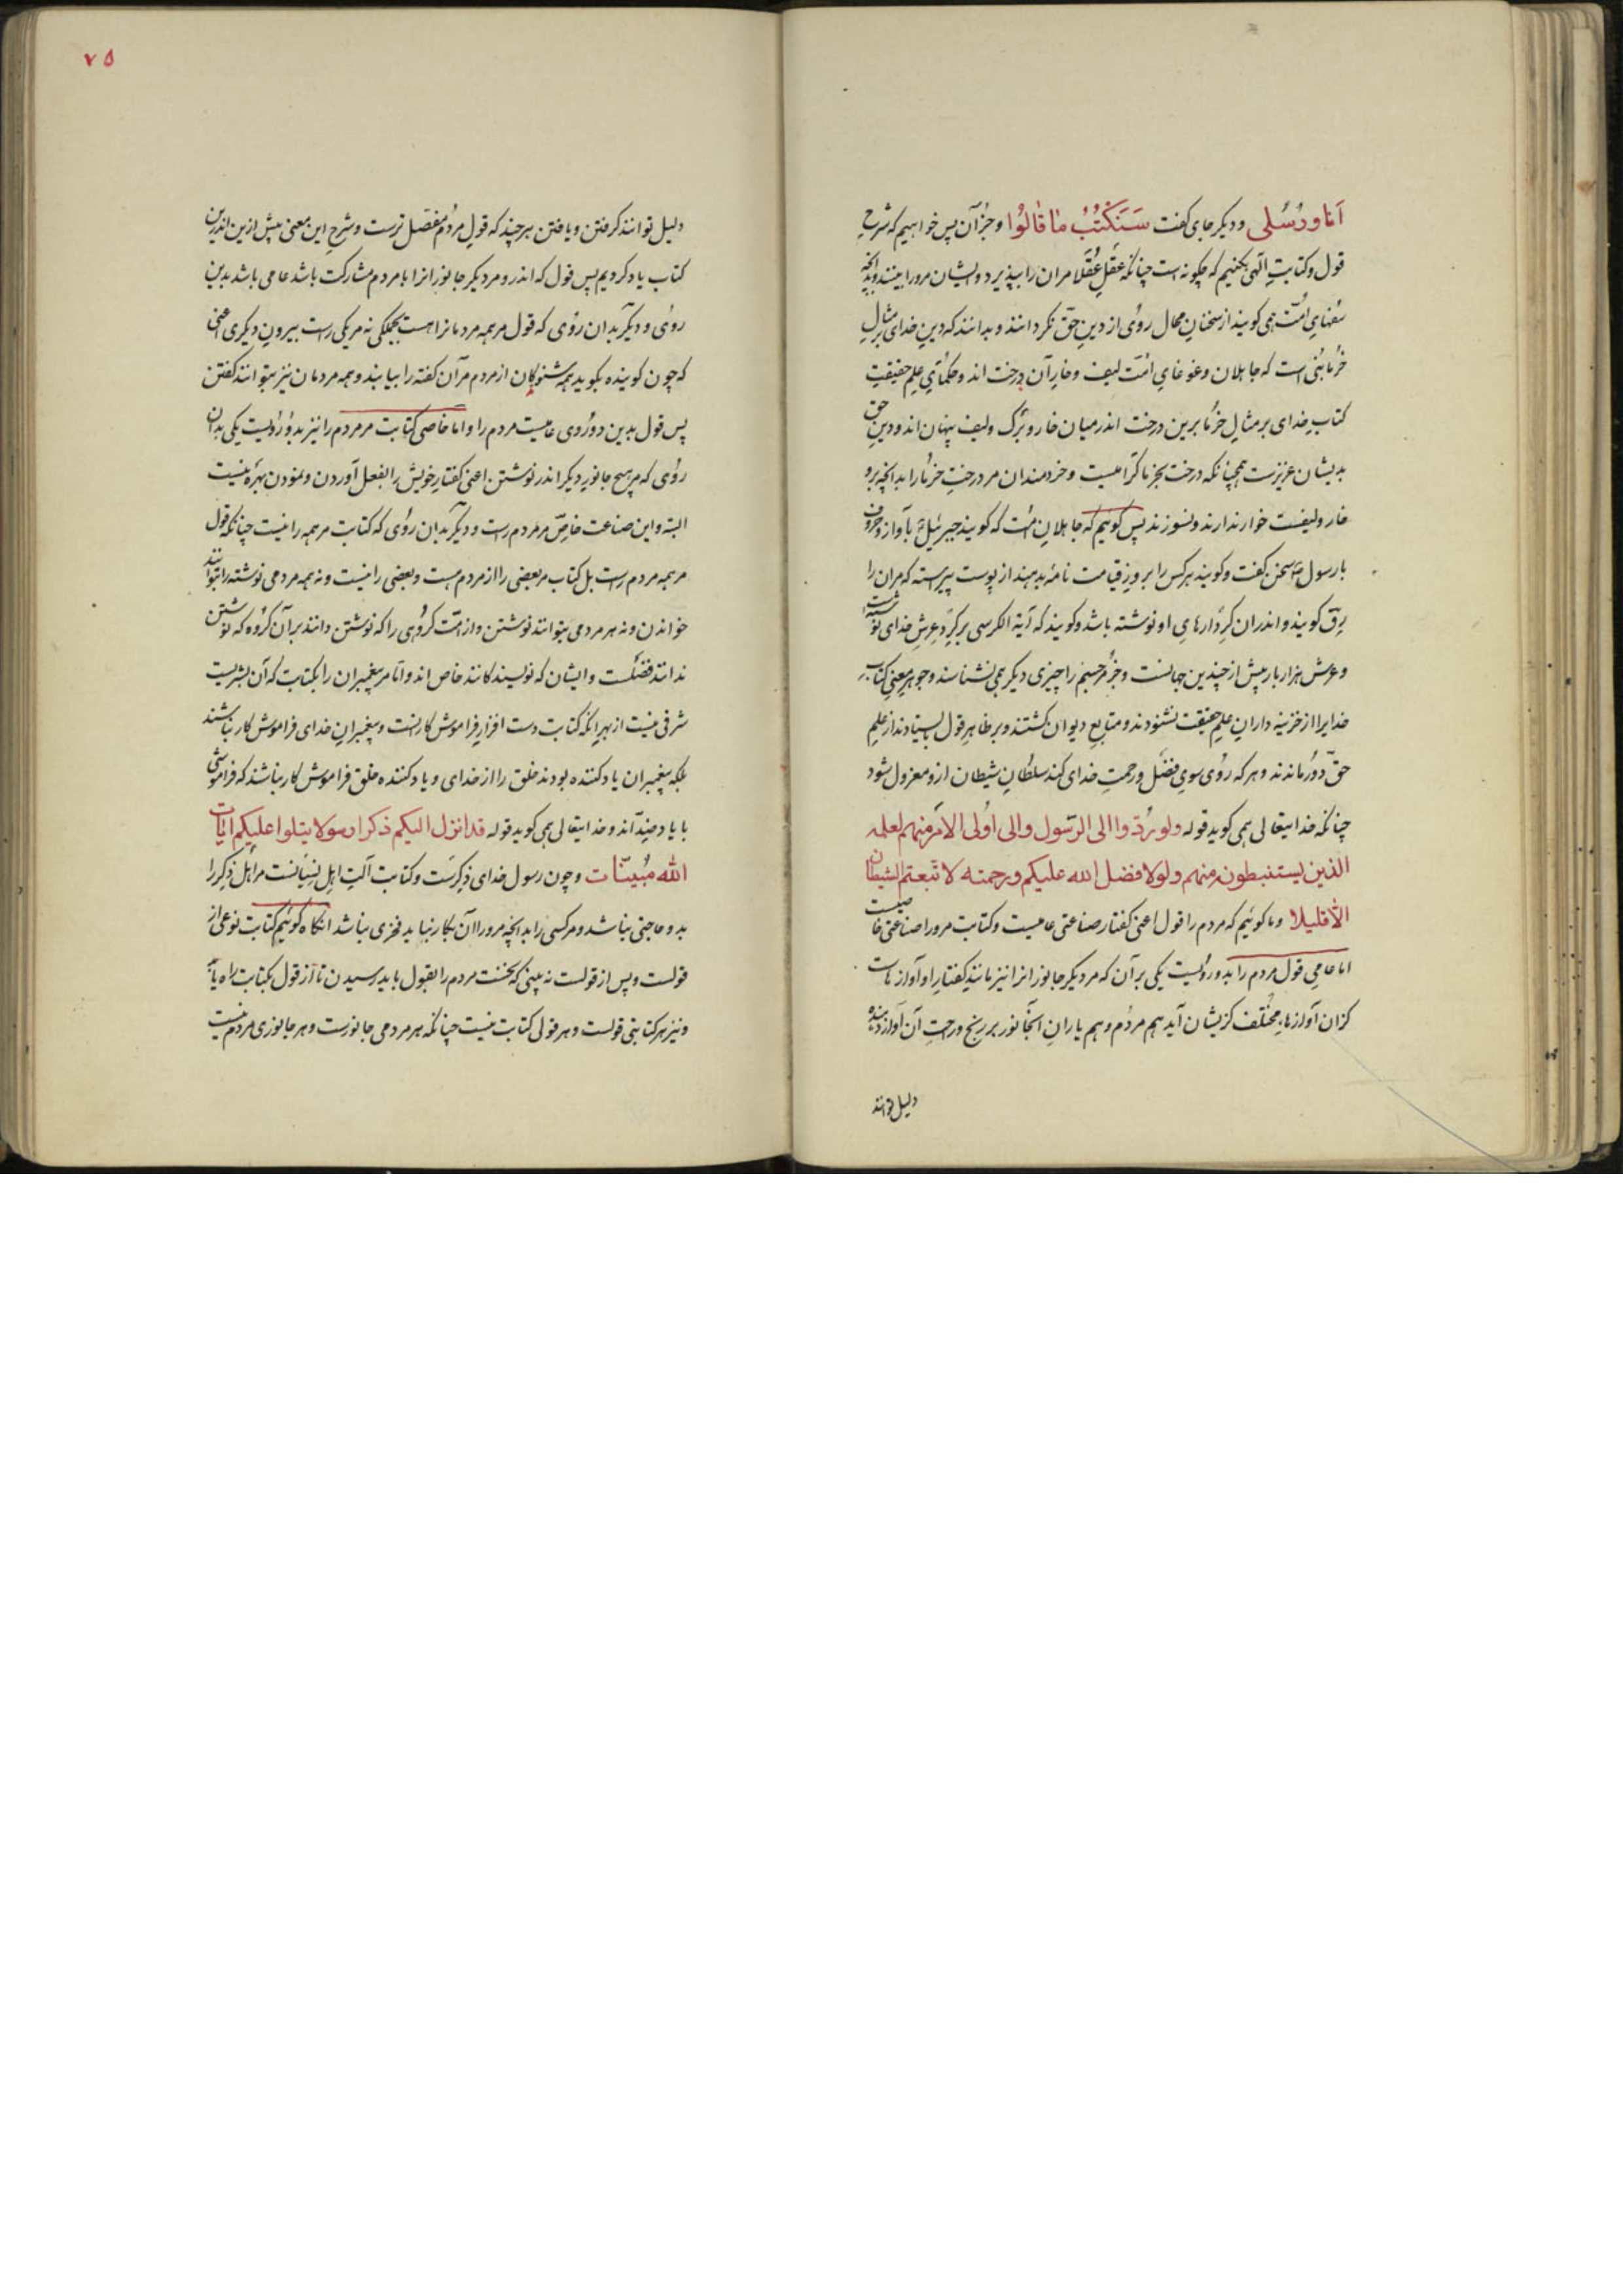 اَنَا وَ رُسُلی و دیکر جای کفت سَنَکْتُبُ مٰا قٰالُوْا و جز آن پس خواهیم که شرحِ
قول و کتابتِ الهی بکنیم که چکونه است چنانکه عقلِ عُقَلا مران را بپذیرد و ایشان مرورا ببینند و بدانچه
سُفهایِ امّت همی کویند از سخنانِ محال روی از دینِ حقّ نکردانند و بدانند که دینِ خدای بر مثالِ
خرمابنی است که جاهلان و غوغایِ امّت لیف و خارِ آن درخت اند و حکمایِ علمِ حقیقتِ
کتابِ خدای بر مثالِ خرما برین درخت اندر میان خار و برک و لیف پنهان اند و دینِ حق
بدیشان عزیزست همچنانکه درخت بخرما کرامیست و خردمندان مر درختِ خرما را بدانچه برو
خار و لیفست خوار ندارند و نسوزند پس کوئیم که جاهلانِ امّت که کویند جبرئیل بآواز و حروف
با رسول سخن کفت و کویند هرکس را بروزِ قیامت نامه بدهند از پوست پیراسته که مران را
رِق کویند و اندران کِردارهایِ او نوشته باشد و کویند که آیة الکرسی بر کِردِ عرشِ خدای نوشته است
و عرش هزار بار بیش از چندین جهانست و جز مر جسم را چیزی دیکر همی نشناسند و جوهرِ معنیِ کتابِ
خدایرا از خزینه دارانِ علمِ حقیقت نشنودند و متابعِ دیوان کشتند و بر ظاهرِ قول بایستادند از علمِ
حقّ دور ماندند و هرکه روی سویِ فضل و رحمتِ خدای کند سلطانِ شیطان ازو معزول شود
چنانکه خدایتعالی همی کوید قوله ولو ردّوا الی الرّسول والی اُولی الامر منهم لعلمه
الذین یستنبطونه منهم ولولا فضل الله علیکم ورحمته لاتّبعتم الشیطان
الّا قلیلا و ما کوئیم که مردم را قول اعنی کفتار صناعتی عامیست و کتابت مرورا صناعتی خاصیست
اما عامیِ قول مردم را بدو رویست یکی بر آن که مر دیکر جانورانرا نیز مانندِ کفتارِ او آوازهاست
کزان آوازهایِ مختلف کزیشان آید هم مردم و هم یارانِ آنجانور بر رنج و راحتِ آن آواز دهنده
دلیل توانند
۷۵
دلیل توانند کرفتن و یافتن هرچند که قولِ مردم مفصّل ترست و شرحِ این معنی پیش ازین اندرین
کتاب یاد کردیم پس قول که اندرو مر دیکر جانورانرا با مردم مشارکت باشد عامی باشد بدین
روی و دیکر بدان روی که قول مر همه مردمانرا هست بجملکی نه مر یکی راست بیرونِ دیکری اعنی
که چون کوینده بکوید همه شنوندکان از مردم مرآن کفته را بیابند و همه مردمان نیز بتوانند کفتن
پس قول بدین دو روی عامیست مردم را و اما خاصیِ کتابت مر مردم را نیز بدو رویست یکی بدان
روی که مر هیچ جانورِ دیکر اندر نوشتن اعنی کفتارِ خویش را بفعل آوردن و نمودن بهره نیست
البته و این صناعت خاصّ مر مردم راست و دیکر بدان روی که کتابت مر همه را نیست چنانکه قول
مر همه مردم راست بل کتاب مر بعضی را از مردم هست و بعضی را نیست و نه همه مردمی نوشته را بتوانند
خواندن و نه هر مردمی بتوانند نوشتن و از امّت کروهی را که نوشتن دانند بر آن کروه که نوشتن
ندانند فضلست و ایشان که نویسندکانند خاص اند و امّا مر پیغمبران را بکتابت که آن بشریست
شرفی نیست از بهرِ آنکه کتابت دست افزارِ فراموش کارانست و پیغمبرانِ خدای فراموش کار نباشند
بلکه پیغمبران یاد کننده بودند خلق را از خدای و یاد کننده خلق فراموش کار نباشند که فراموشی
با یاد ضِدّاند و خدایتعالی همی کوید قوله قد انزل الیکم ذکرا رسولا یتلوا علیکم ایات
الله مُبیّنات و چون رسول خدای ذِکرست و کتابت آلتِ اهلِ نِسیانست مر اهل ذِکر را
بدو حاجتی نباشد و مر کسی را بدانچه مرورا آن بکار نیاید فخری نباشد انکاه کوئیم کتابت نوعی از
قولست و پس از قولست نه بینی که نخست مردم را بقول باید رسیدن تا از قول بکتابت راه یابد
و نیز هر کتابتی قولست و هر قولی کتابت نیست چنانکه هر مردمی جانورست و هر جانوری مردم نیست